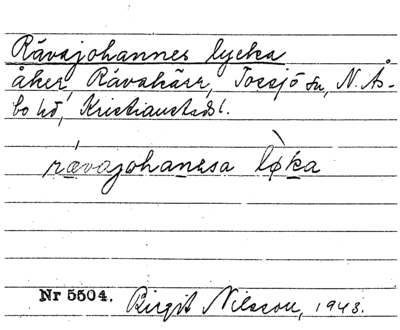 Rävajohannes lycka
åker, Rävakärr, Tossjö sn, N. Ås-
bo hd, Kristianstads l.
rävajohanɛsa løka
Nr 5504. Birgit Nilsson, 1943.